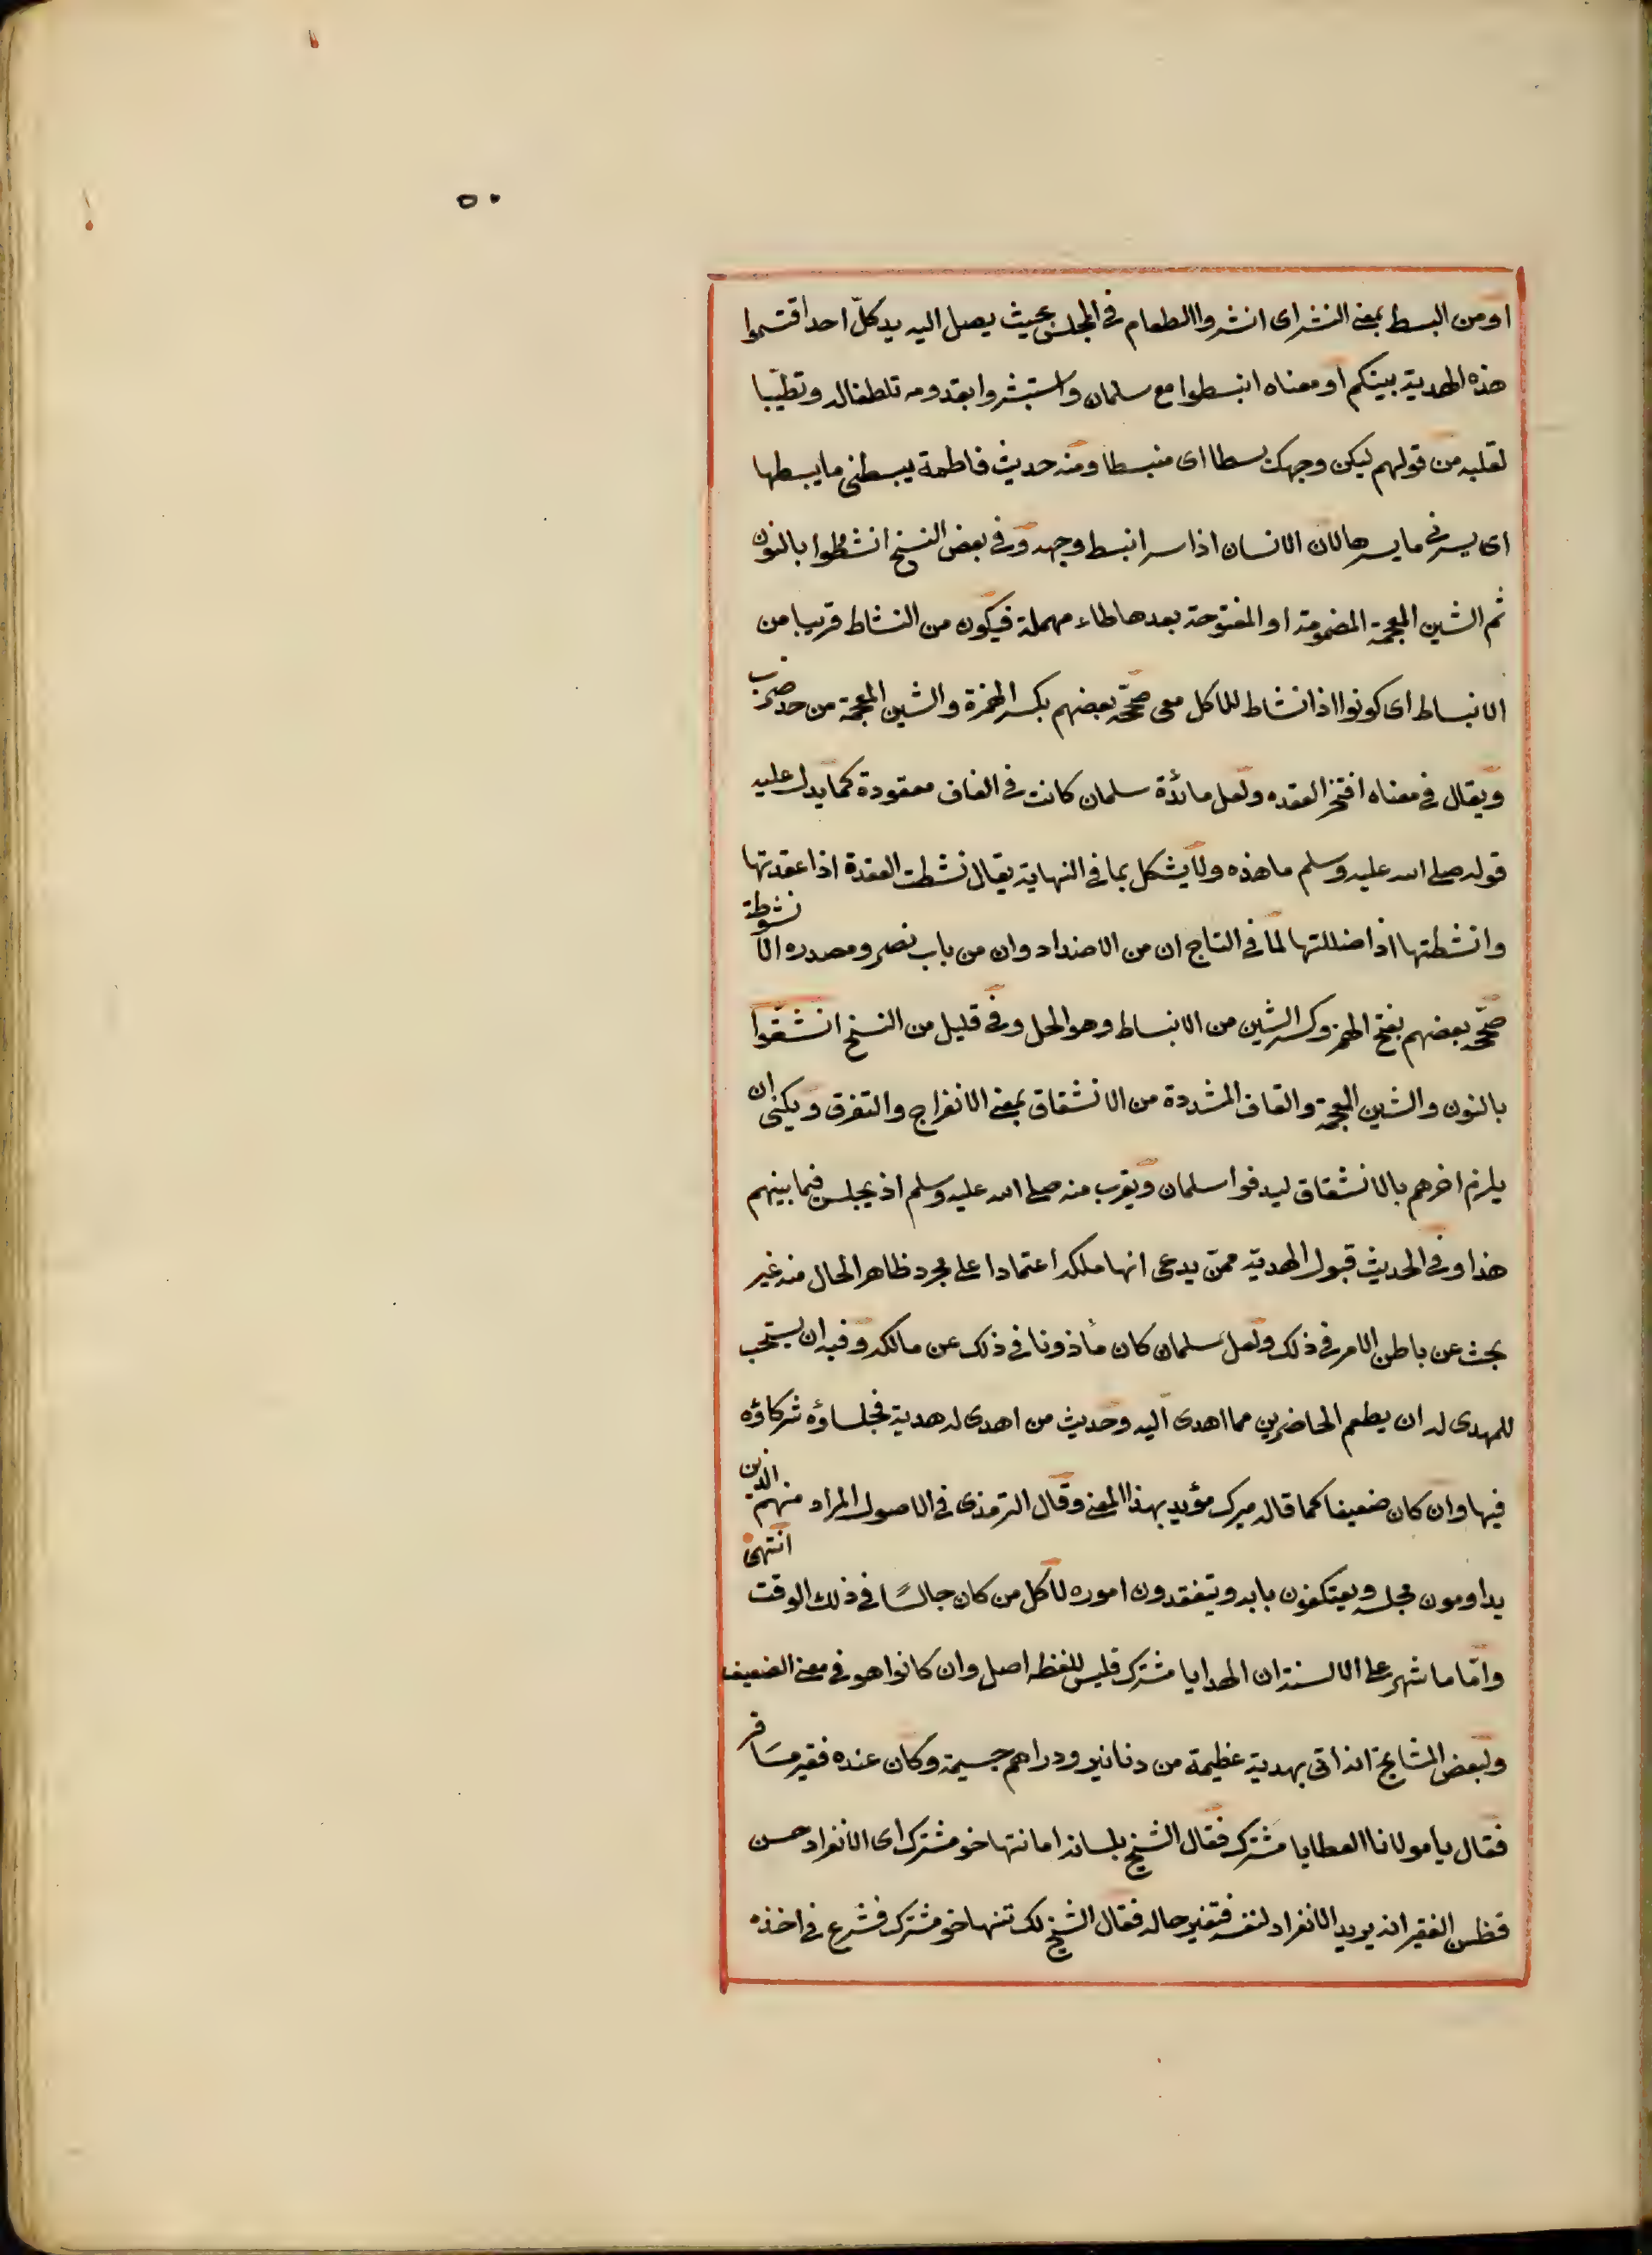 ٥٠
او من البسط بمعنى النشر اى انشروا الطعام فى المجلس بحيث يصل اليه يد كلّ احد اقتسموا
هذه الهدية بينكم او معناه انبسطوا مع سلمان واستبشروا بقدومه تلطفا له وتطيّبا
لقلبه من قولهم ليكن وجهك بسطا اى منبسطا ومنه حديث فاطمة يبسطنى ما يبسطها
اى يسرنى ما يسرها لان الانسان اذا سر انبسط وجهه وفى بعض النسخ انشطوا بالنون
ثم الشين المعجمة المضمومة او المفتوحة بعدها طاء مهملة فيكون من النشاط قريبا من
الانبساط اى كونوا اذا نشاط للاكل معى صحّحه بعضهم بكسر الهمزة والشين المعجمة من حد ضرب
ويقال فى معناه افتح العقده ولعل مائدة سلمان كانت فى الفاف معقودة كما يدل عليه
قوله صلى الله عليه وسلم ما هذه ولا يشكل بما فى النهاية يقال نشطت العقدة اذا عقدتها
وانشطتها اذا ضللتها لما فى التاج ان من الاضداد وان من باب نصر ومصدره الا نشوطة
صحّحه بعضهم بفتح الهمز وكسر الشين من الانبساط وهو الحل وفى قليل من النسخ انشقّوا
بالنون والشين المعجمة والقاف المشددة من الانشقاق بمعنى الانفراج والتفرق ويكنى ان
يلزم اخرهم بالانشقاق ليدفوا سلمان ويقرب منه صلى الله عليه وسلم اذ يجلس فيما بينهم
هذا وفى الحديث قبول الهديّة ممّن يدعى انها ملكه اعتمادا على مجرد ظاهر الحال منه غير
بحث عن باطن الامر فى ذلك ولعل سلمان كان مأذونا فى ذلك عن مالكه وفيه ان يستحب
للمهدى له ان يطعم الحاضرين مما اهدى اليه وحديث من اهدى له هدية فجلساؤه شركاؤه
فيها وان كان ضعيفا كما قاله ميرك مؤيد بهذا المعنى وقال الترمذى فى الاصول المراد منهم الذين
يداومون مجلسه ويعتكفون بابه ويتفقدون اموره لا كل من كان جالسًا فى ذلك الوقت انتهى
وامّا ما شهر على الالسنة ان الهدايا مشترك فليس للفظه اصل وان كانوا هو فى معنى الضعيف
ولبعض المشايخ انه اتى بهدية عظيمة من دنانير ودراهم جسيمة وكان عنده فقير مسافر
فقال يا مولانا العطايا مشترك فقال الشيخ بلسانه اما نتها خو مشترك اى الانفراد حسن
فظن الفقير انه يريد الانفراد لنفسه فتغير حاله فقال الشيخ لك تنها خو مشترك فشرع فى اخذه